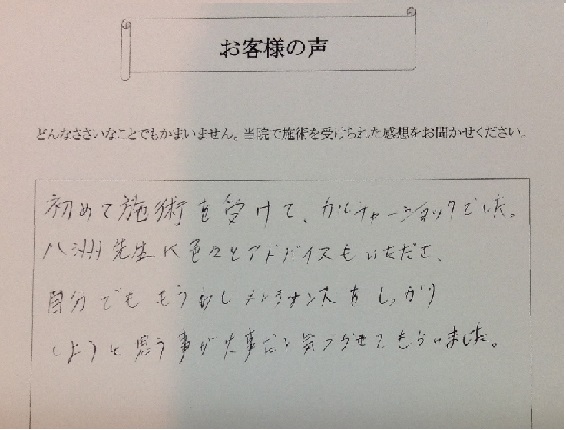 お客様の声
どんなささいなことでもかまいません。当院で施術を受けられた感想をお聞かせください。
初めて施術を受けて、カルチャーショックでした。
八洲先生に色々とアドバイスもいただき、
自分でももう少しメンテナンスをしっかり
しようと思う事が大事だと気づかせてもらいました。